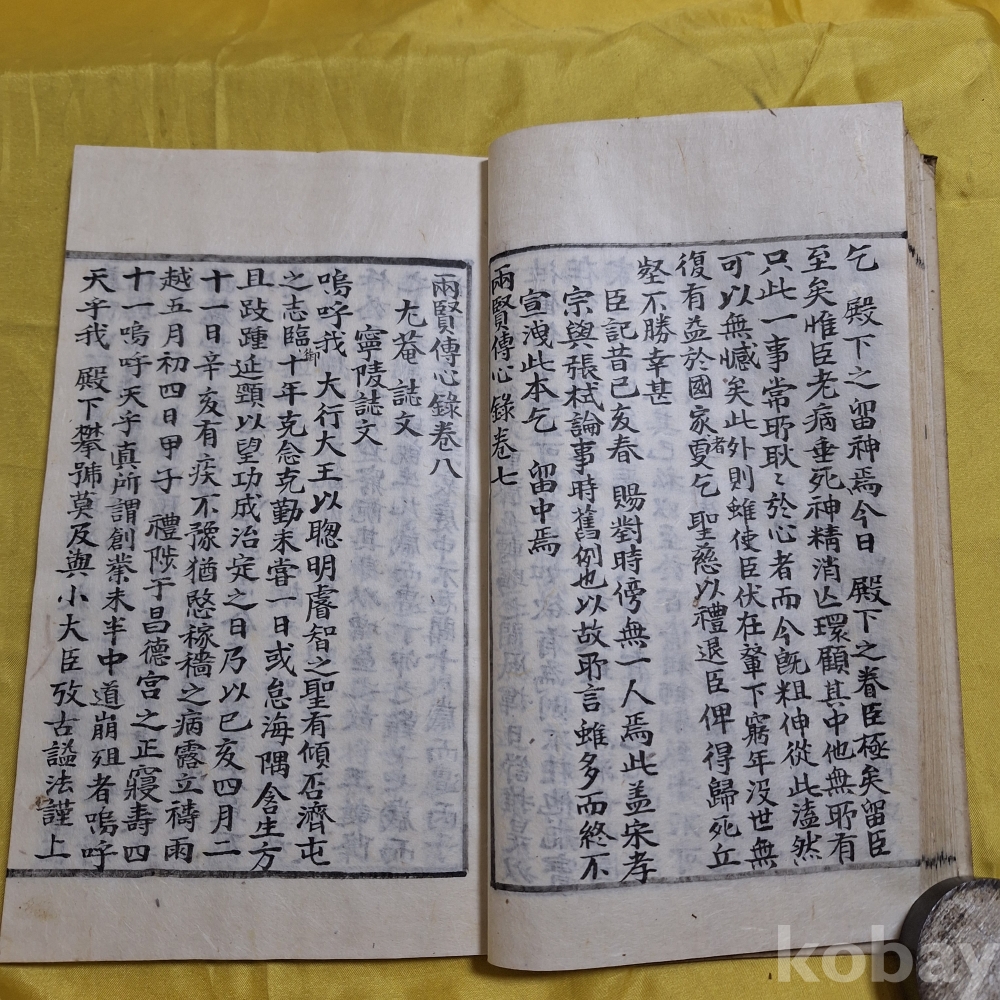 乞 殿下之留神焉今日 殿下之眷臣極矣留臣
至矣惟臣老病垂死神精消亡環顧其中他無所有
只此一事常所耿〻於心者而今旣粗伸從此溘然
可以無憾矣此外則雖使臣伏在輦下窮年没世無
復有益於國家者更乞 聖慈以禮退臣俾得歸死丘
壑不勝幸甚
臣記昔己亥春 賜對時傍無一人焉此盖宋孝
宗與張栻論事時舊例也以故所言雖多而終不
宣洩此本乞 留中焉
兩賢傳心錄卷七
兩賢傳心錄卷八
尤菴誌文
寧陵誌文
嗚呼我 大行大王以聰明睿智之聖有傾否濟屯
之志臨御十年克念克勤未嘗一日或怠海隅含生方
且跂踵延頸以望功成治定之日乃以己亥四月二
十一日辛亥有疾不豫猶愍稼穡之病露立禱雨
越五月初四日甲子 禮陟于昌德宮之正寢壽四
十一嗚呼天乎真所謂創業未半中道崩殂者嗚呼
天乎我 殿下攀號莫及與小大臣攷古謚法謹上
kobay